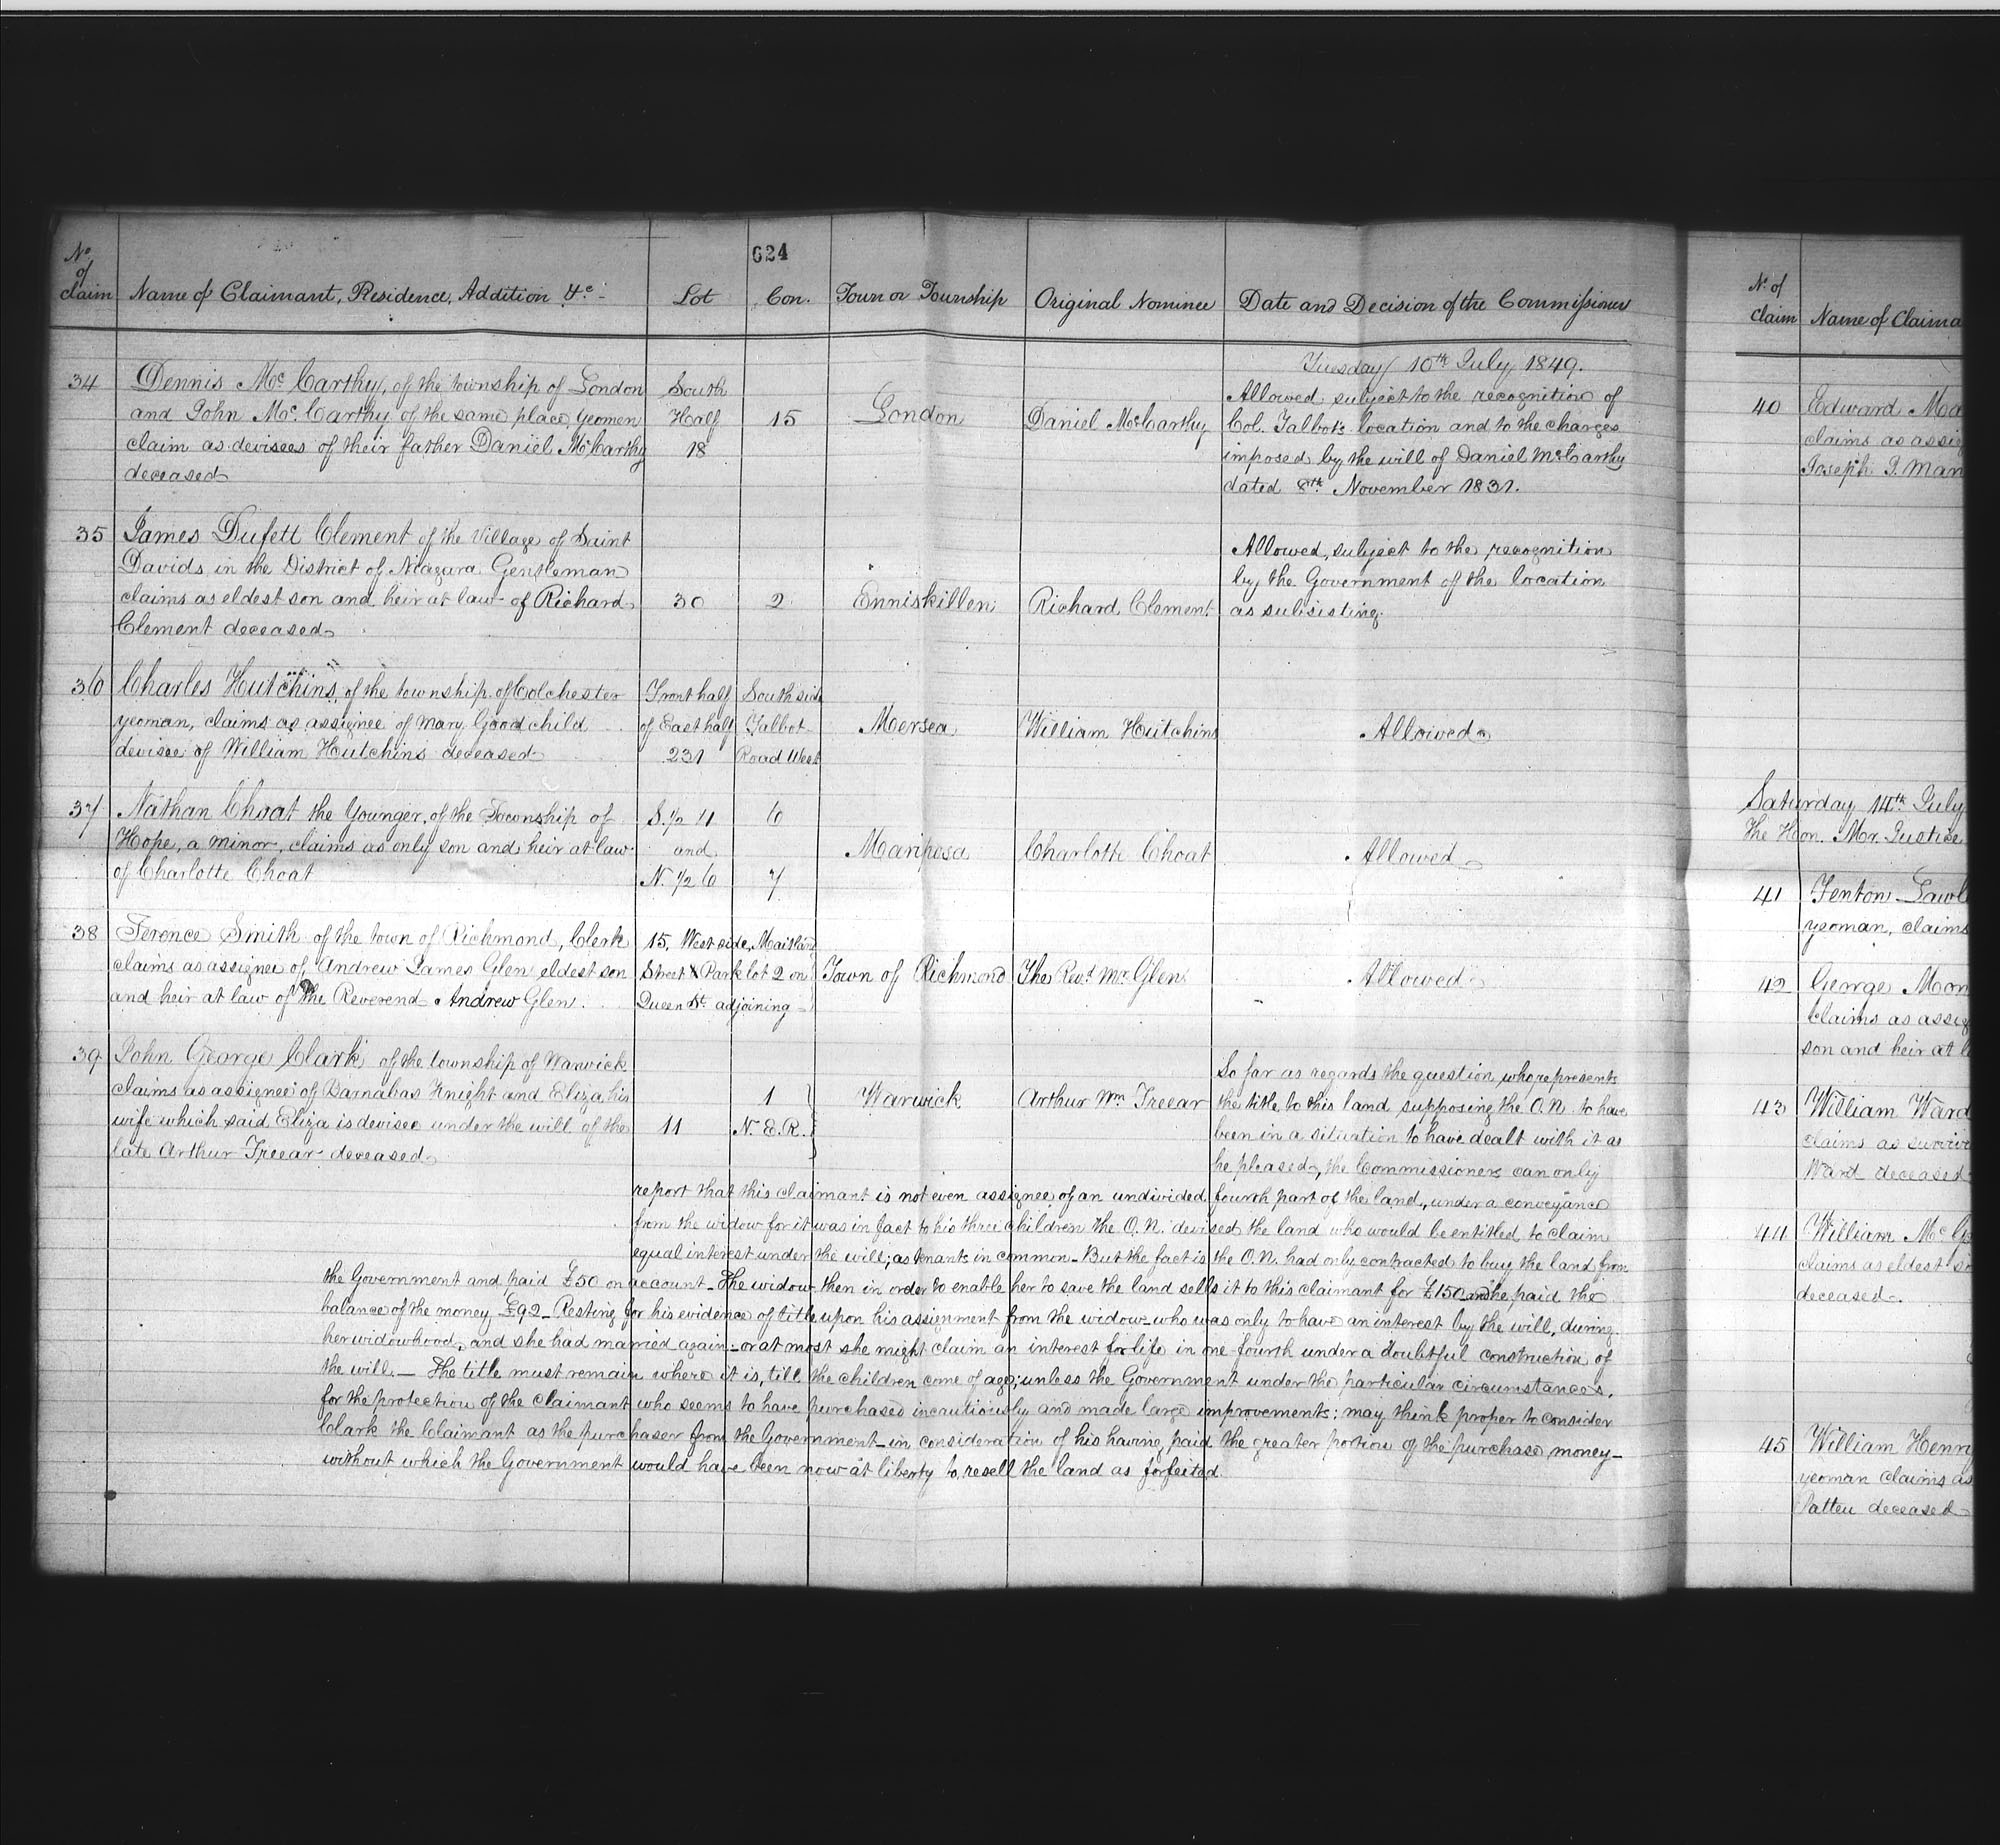 624
No of claim | Name of Claimant, Residence, Addition &c - | Lot | Con. | Town or Township | Original Nominee | Date and Decision of the Commissioners
Tuesday 10th July 1849.
34 | Dennis McCarthy, of the township of London | South | Allowed subject to the recognition of
and John McCarthy of the same place, Yeomen | Half | 15 | London | Daniel McCarthy | Col. Talbot's location and to the charges
claim as devisees of their father Daniel McCarthy | 18 | imposed by the will of Daniel McCarthy
deceased | dated 8th November 1831.
35 | James Dufett Clement of the Village of Saint
Davids in the District of Niagara Gentleman | Allowed, subject to the recognition
claims as eldest son and heir at law of Richard | 30 | 2 | Enniskillen | Richard Clement | by the Government of the location
Clement deceased | as subsisting.
36 | Charles Hutchins of the township of Colchester | Front half | South side
yeoman, claims as assignee of Mary Goodchild | of East half | Talbot | Mersea | William Hutchins | Allowed
devisee of William Hutchins deceased | 231 | Road West
37 | Nathan Choat the Younger, of the Township of | S. 1/2 11 | 6
Hope, a minor, claims as only son and heir at law | and | Mariposa | Charlotte Choat | Allowed
of Charlotte Choat | N. 1/2 6 | 7
38 | Terence Smith of the town of Richmond, Clerk | 15, West side, Maitland
claims as assignee of Andrew James Glen eldest son | Street & Park lot 2 on | Town of Richmond | The Revd Mr. Glen | Allowed
and heir at law of The Reverend Andrew Glen. | Queen St. adjoining
39 | John George Clark of the township of Warwick | So far as regards the question who represents
claims as assignee of Barnabas Knight and Eliza his | 1 | Warwick | Arthur Wm Freear | the title to this land supposing the O.N. to have
wife which said Eliza is devisee under the will of the | 11 | N.E.R. | been in a situation to have dealt with it as
late Arthur Freear deceased | he pleased, the Commissioners can only
report that this claimant is not even assignee of an undivided fourth part of the land, under a conveyance
from the widow for it was in fact to his three children the O.N. devised the land who would be entitled to claim
equal interest under the will; as tenants in common - But the fact is the O.N. had only contracted to buy the land from
the Government and paid £50 on account - The widow then in order to enable her to save the land sells it to this claimant for £150 and he paid the
balance of the money £92 - Resting for his evidence of title upon his assignment from the widow who was only to have an interest by the will, during
her widowhood, and she had married again - or at most she might claim an interest for life in one fourth under a doubtful construction of
the will. - The title must remain where it is, till the children come of age; unless the Government under the particular circumstances,
for the protection of the claimant who seems to have purchased incautiously and made large improvements: may think proper to consider
Clark the Claimant as the purchaser from the Government - in consideration of his having paid the greater portion of the purchase money -
without which the Government would have been now at liberty to resell the land as forfeited.
No of claim | Name of Claima
40 | Edward Ma
claims as assig
Joseph P. Man
Saturday 14th July
The Hon. Mr. Justice
41 | Fenton Lawl
yeoman, claims
42 | George Mon
Claims as assig
son and heir at l
43 | William Ward
claims as
Ward deceased
44 | William Mc
claims as eldest so
deceased.
45 | William Henry
yeoman claims as
Patten deceased